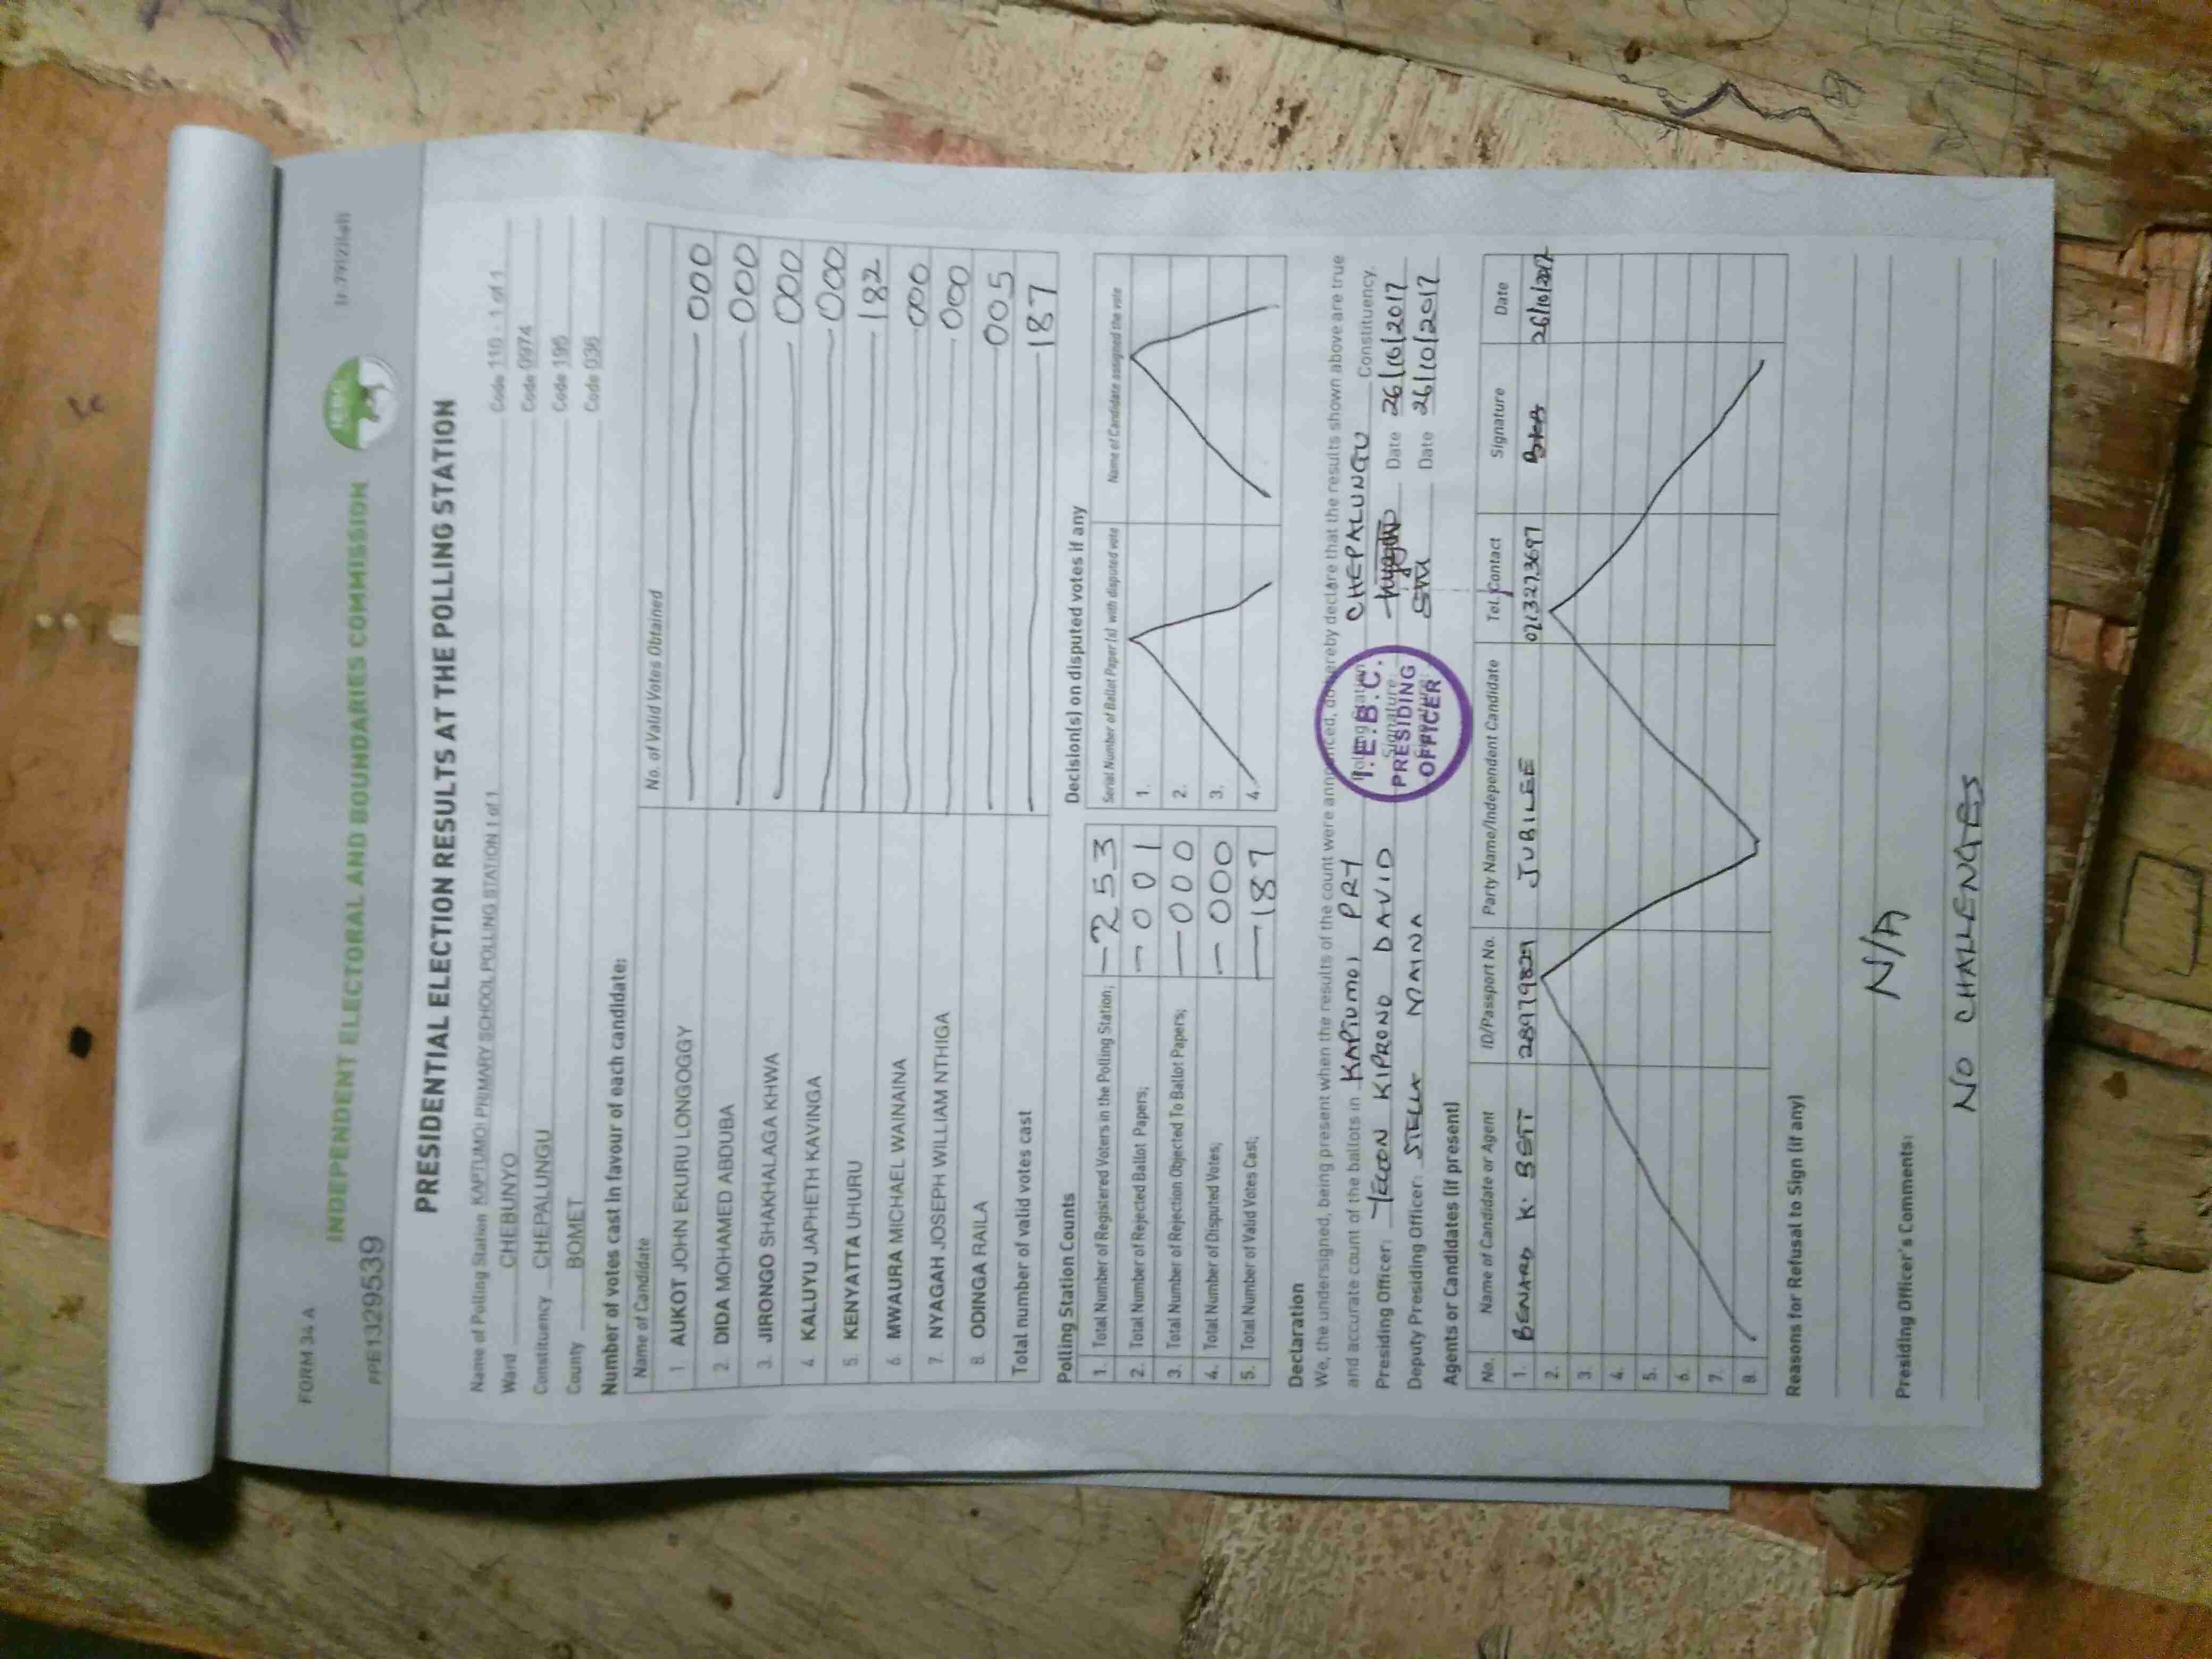 FORM 34 A
INDEPENDENT ELECTORAL AND BOUNDARIES COMMISSION
IEBC
PPE1329539
PRESIDENTIAL ELECTION RESULTS AT THE POLLING STATION
Name of Polling Station KAPTUMOI PRIMARY SCHOOL POLLING STATION 1 of 1 Code 110 - 1 of 1
Ward CHEBUNYO Code 0974
Constituency CHEPALUNGU Code 195
County BOMET Code 036
Number of votes cast in favour of each candidate:
Name of Candidate No. of Valid Votes Obtained
1. AUKOT JOHN EKURU LONGOGGY 000
2. DIDA MOHAMED ABDUBA 000
3. JIRONGO SHAKHALAGA KHWA 000
4. KALUYU JAPHETH KAVINGA 000
5. KENYATTA UHURU 182
6. MWAURA MICHAEL WAINAINA 000
7. NYAGAH JOSEPH WILLIAM NTHIGA 000
8. ODINGA RAILA 005
Total number of valid votes cast 187
Polling Station Counts
1. Total Number of Registered Voters in the Polling Station; 253
2. Total Number of Rejected Ballot Papers; 001
3. Total Number of Rejection Objected To Ballot Papers; 000
4. Total Number of Disputed Votes; 000
5. Total Number of Valid Votes Cast; 187
Decision(s) on disputed votes if any
Serial Number of Ballot Paper (s) with disputed vote Name of Candidate assigned the vote
1.
2.
3.
4.
Declaration
We, the undersigned, being present when the results of the count were announced, do hereby declare that the results shown above are true
and accurate count of the ballots in KAPTUMOI PRY Polling Station CHEPALUNGU Constituency.
Presiding Officer: YEGON KIPRONO DAVID Signature: Date 26/10/2017
Deputy Presiding Officer: STELLA MAINA Signature: Date 26/10/2017
I.E.B.C.
PRESIDING
OFFICER
Agents or Candidates (if present)
No. Name of Candidate or Agent ID/Passport No. Party Name/Independent Candidate Tel. Contact Signature Date
1. BENARD K. BETT JUBILEE 0713273697 26/10/2017
2.
3.
4.
5.
6.
7.
8.
Reasons for Refusal to Sign (if any)
N/A
Presiding Officer's Comments:
NO CHALLENGES